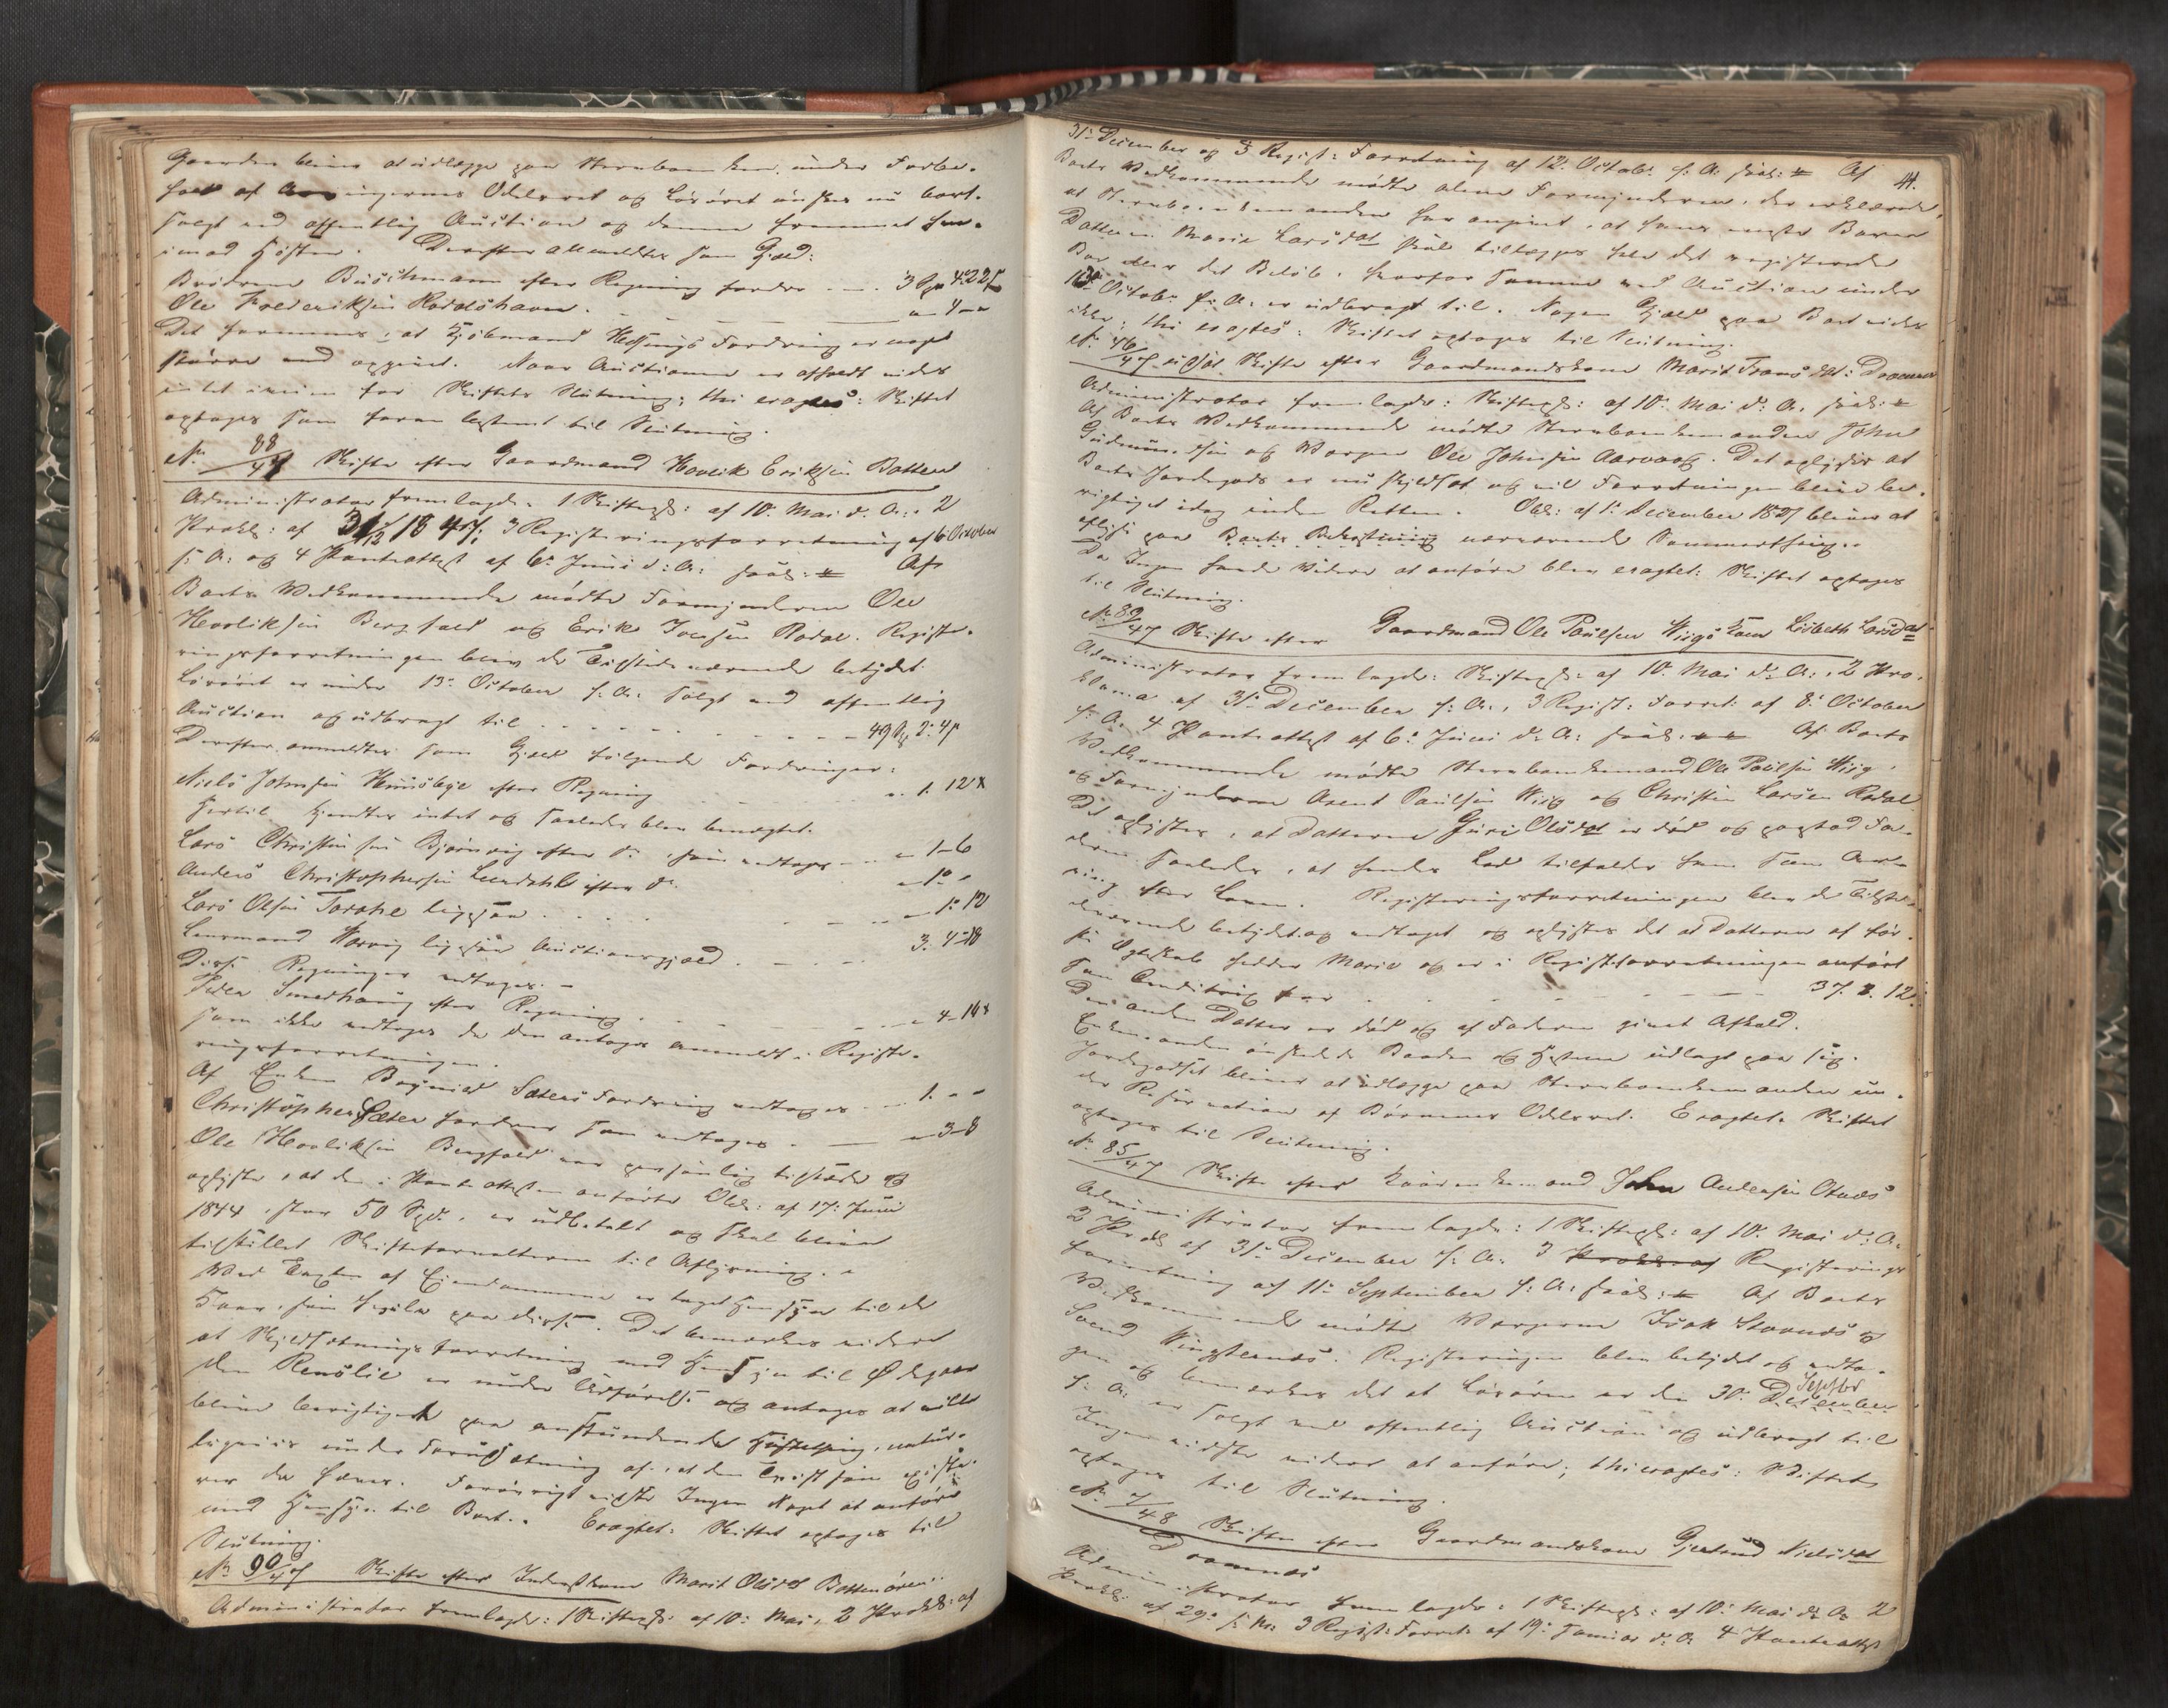 Gaarden bliver at udlægge paa Stervboenken under Forbe-
hold af Arvingernes Odelsret og Løsøret ønskes nu bort-
solgt ved offentlig Auction og denne fremmet
imod Høsten. Derefter anmeldtes som Gjæld:
Buschmann efter Regning fordrer 3 Spd 4 " 22 s
Ole Frederiksen Hoddøshavn " 4 "
Det formenes, at Kjøbmand Fordring er noget
større end opgivet. Naar Auctionen er afholdt vides
intet iveien for Skiftets Slutning; thi eragtes: Skiftet
optages som foran bestemt til Slutning.
No 88/47 Skifte efter Gaardmand Hovlik Eriksen Botten
Administrator fremlagde 1 Skiftegb: af 10de Mai d. A., 2
Prokl: af 31/12 1847, 3 Registreringsforretning af 6 October
f. A. og 4 Panteattest af 6te Juni d. A. saal:
Af
Boets Vedkommende mødte Formynderen Ole
Hovliksen Bergfald og Erik Iversen Rødal. Registe-
ringsforretningen blev de Tilstedeværende betydet.
Løsøret er under 13de October f. A. solgt ved offentlig
Auction og udbragt til 49 Spd 2 " 4 s
Derefter anmeldtes som Gjæld følgende Fordringer:
Niels Johnsen Huusbye efter Regning " 1. 12 s
Hertil kjendtes intet og saaledes blev benegtet.
Lars Christensen Bjørnvig efter do, som vedtoges " 1 " 6
Anders Christophersen Leerdahl efter do " 1 "
Lars Olsen Torske ligesaa " 1 " 12
Lensmand ligesaa Auctionsgjæld 3. 4 " 18
Disse Regninger vedtoges. -
Peder Smedhaug efter Regning " 4 " 16 s
som ikke vedtoges da den antoges anmeldt i Registe-
ringsforretningen.
Af Enken Sæters Fordring vedtoges " 1. " "
Christopher Sæter fordrer som vedtoges " 3 " 8
Ole Hovliksen Bergfald var personlig tilstæde og
oplyste, at den i Panteattesten anførte Obl: af 17de Juni
1844, stor 50 Spd., er udbetalt og skal blive
tilstillet Skifteforvalteren til Aflysning.
Ved Taxten af Eiendommene er taget Hensyn til de
Kaar, som hviler paa disse. Det bemærkes videre
at Skyldsætningsforretning med Hensyn til Ødegaar
den Renslie er under Udførelse og antages at ville
blive berigtiget paa anstundende Høstething, natur-
ligviis under Forudsætning af, at den Tvist som existe-
rer da hæves. Forøvrigt vidste Ingen Noget at anføre
med Hensyn til Boet. Eragtet: Skiftet optages til
Slutning.
No 90/47 Skifte efter Inderstkone Marit Olsdat Bottenøren.
Administrator fremlagde: 1 Skiftegb: af 10de Mai, 2 Prokl: af
41.
31te December og 3 Regist: Forretning af 12te Octobr f. A. saal: Af
Boets Vedkommende mødte alene Formynderen, der erklærede,
at Stervboenkemanden har angivet, at hans yngste Barn
Datteren Marie Larsdat skal tillægges hele det registrerede
Bo eller det Beløb, hvorfor samme ved Auction under
13de Octobr f. A. er udbragt til. Nogen Gjæld paa Boet vides
ikke; thi eragtes: Skiftet optages til Slutning.
No 46/47 Skifte efter Gaardmandskone Marit Dat: Dromnes
Administrator fremlagde: Skiftegb: af 10de Mai d. A. saal:
Af Boets Vedkommende mødte Stervboenkemanden John
Gudmundsen og Værgen Ole Johnsen Aarvaag. Det oplystes at
Boets Jordegods er nu skyldsat og vil Forretningen blive be-
rigtiget idag inden Retten. Obl: af 1te December 1827 bliver at
aflyse paa Boets Bekostning nærværende Sommerthing.
Da Ingen havde Videre at anføre blev eragtet: Skiftet optages
til Slutning.
No 89/47 Skifte efter Gaardmand Ole Paulsen Wiigs Kone Lisbeth Larsdat
Administrator fremlagde: Skiftegb: af 10de Mai d. A., 2 Pro-
klama af 31te December f. A., 3 Regist: Forret: af 8de October
f. A. 4 Panteattest af 6te Juni d. A. saal: Af Boets
Vedkommende mødte Stervboenkemand Ole Paulsen Wiig
og Formynderne Arent Paulsen Wiig og Christen Larsen Rødal
Det oplystes, at Datteren Guri Olsdat er død og paastod Fa-
deren saaledes, at hendes Lod tilfalder ham som Arv-
ing efter Loven. Registeringsforretningen blev de Tilstede-
værende betydet og vedtaget og oplystes det at Datteren af før-
ste Ægteskab hedder Marie og er i Registforretningen anført
som Creditrix for 37. 2. 12.
Den anden Datter er død og af Faderen givet Afkald.
Enkemanden ønskede Baaden og Hesten udlagt paa sig.
Jordegodset bliver at udlægge paa Stervboenkemanden un-
der Reservation af Børnenes Odelsret. Eragtet: Skiftet
optages til Slutning.
No 85/47 Skifte efter Kaarenkemand John Andersen Otnæs
Administrator fremlagde: 1 Skiftegb: af 10de Mai d. A.
2 Prokl af 31te December f. A. 3 Registerings
forretning af 11te September f. A. saal: Af Boets
Vedkommende mødte Værgerne Isak Stornæs og
Svend Vingsternæs. Registeringen blev betydet og vedta-
gen og bemærkes det at Løsøren er den 30te December Septbr
f. A. er solgt ved offentlig Auction og udbragt til
Ingen vidste videre at anføre; thi eragtes: Skiftet
optages til Slutning.
No 7/48 Skifte efter Gaardmandskone Gjertrud Nielsdat
Dromnes
Administrator fremlagde: 1 Skiftegb: af 10de Mai d. A. 2
Prokl: af 29de f. M. 3 Regist: Forret: af 19de Januar d. A. 4 Panteattest